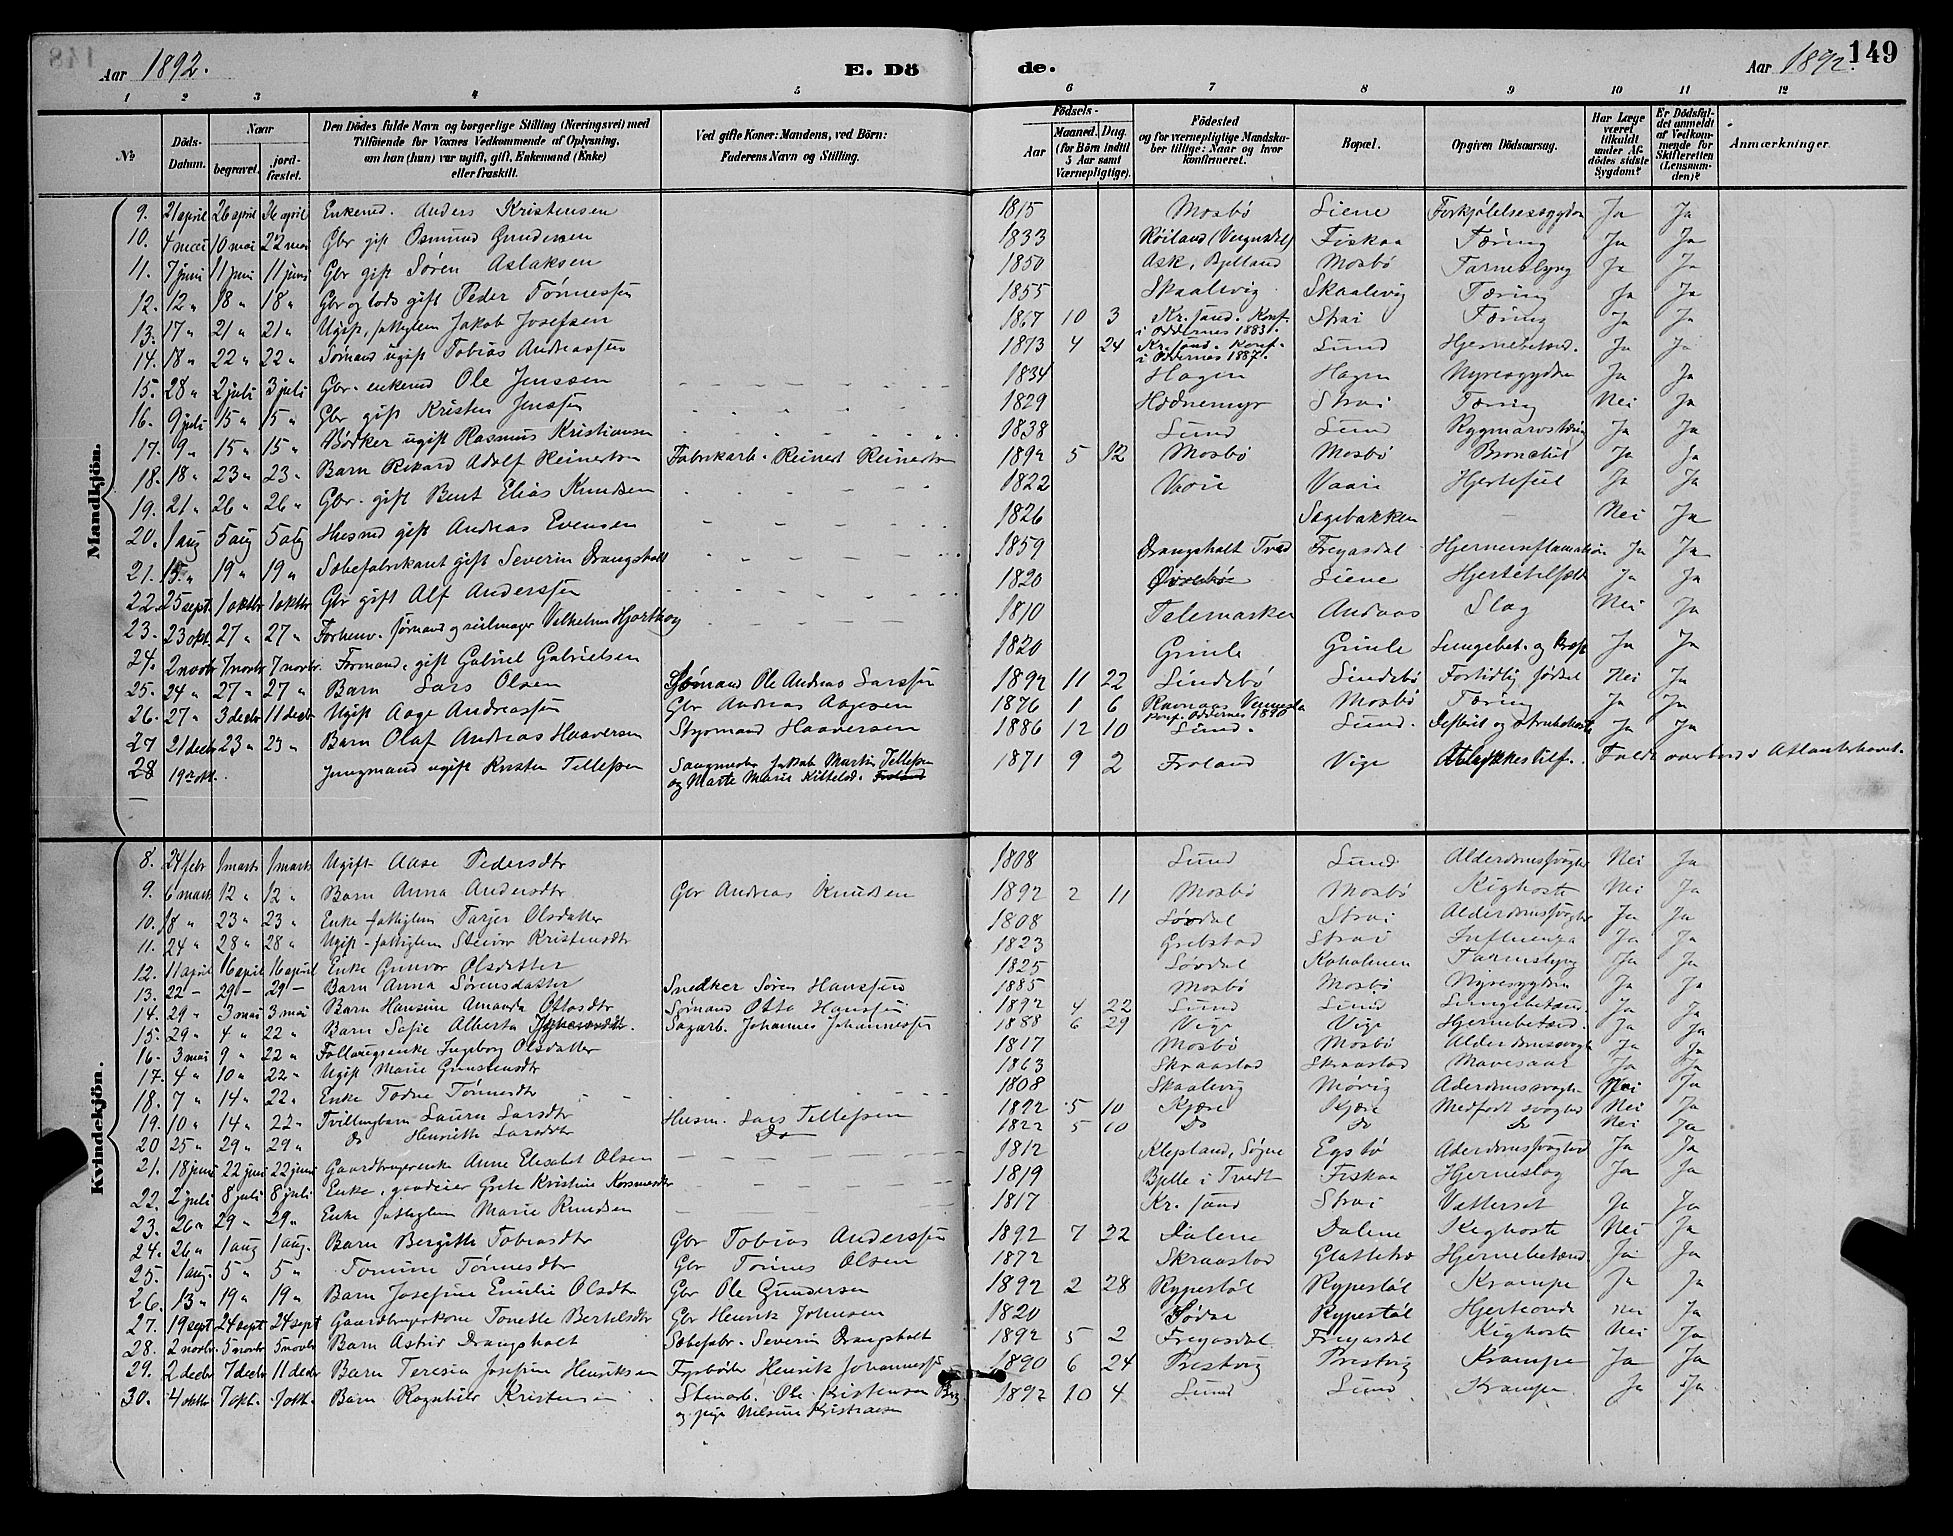 148
Aar 1892.
E. Dö
de.
Aar 1892.
149
1 2 3 4 5 6 7 8 9 10 11 12
№
Döds-Datum.
Naar
begravet.
jord-fæstet.
Den Dödes fulde Navn og borgerlige Stilling (Næringsvei) med
Tilföiende for Voxnes Vedkommende af Oplysning,
om han (hun) var ugift, gift, Enkemand (Enke)
eller fraskilt.
Ved gifte Koner: Mandens, ved Börn:
Faderens Navn og Stilling.
Födsels-
Aar
Maaned. Dag.
(for Börn indtil
5 Aar samt
Værnepligtige).
Födested
og for værnepligtige Mandska-
ber tillige: Naar og hvor
konfirmeret.
Bopæl.
Opgiven Dödsaarsag.
Har Læge
været
tilkaldt
under Af-
dödes sidste
Sygdom?
Er Dödsfal-
det anmeldt
af Vedkom-
mende for
Skifteretten
(Lensman-
den)?
Anmærkninger.
Mandkjön.
9. 21 april 26 april 26 april Enkemd. Anders Kristensen 1815 Mosbö Liene Forkjölelsessygdom Ja Ja
10. 4 mai 10 mai 22 mai Gbr gift Osmund Gundersen 1833 Röiland (Vengusdal) Fiskaa Tæring Ja Ja
11. 7 juni 11 juni 11 juni Gbr gift Sören Aslaksen 1850 Ask, Bjelland Mosbö Tarmeslyng Ja Ja
12. 12 " 18 " 18 " Gbr og lods gift Peder Tönnessen 1855 Skaalevig Skaalevig Tæring Ja Ja
13. 17 " 21 " 21 " Ugift, fattiglem Jakob Josefsen 1867 10 3 Kr.sand. Konf. i Oddernes 1883. Strai Tæring Ja Ja
14. 18 " 22 " 22 " Sömand ugift Tobias Andreassen 1873 4 24 Kr.sand. Konf. i Oddernes 1887. Lund Hjernebetænd. Ja Ja
15. 28 " 2 juli 3 juli Gbr. enkemd Ole Jenssen 1834 Hagen Hagen Nyresygdom Ja Ja
16. 9 juli 15 " 15 " Gbr gift Kristen Jenssen 1829 Hodnemyr Strai Tæring Nei Ja
17. 9 " 15 " 15 " Bödker ugift Rasmus Kristiansen 1838 Lund Lund Rygmarvstæring Ja Ja
18. 18 " 23 " 23 " Barn Rikard Adolf Reinertsen Fabrikarb. Reinert Reinertsen 1892 5 12 Mosbö Mosbö Bronchit Ja Ja
19. 21 " 26 " 26 " Gbr. gift Bent Elias Knudsen 1822 Vaarie Vaarie Hjertefeil Ja Ja
20. 1 aug 5 aug 5 aug Husmd gift Andreas Evensen 1826 Sagebakken Nei Ja
21. 15 " 19 " 19 " Sæbefabrikant gift Severin Drangsholt 1859 Drangsholt Tved Fregasdal Hjerneinflamation Ja Ja
22. 25 sept. 1 oktbr 1 oktbr Gbr gift Alf Anderssen 1820 Övrebö Liene Hjertetilfælde Ja Ja
23. 23 okt. 27 " 27 " Forhenv. sömand og seilmager Vilhelm 1810 Telemarken Andaas Slag Nei Ja
24. 2 novbr 7 novbr 7 novbr. Formand, gift Gabriel Gabrielsen 1820 Grimle Grimle Lungebet. og Ja Ja
25. 24 " 27 " 27 " Barn Lars Olsen Sömand Ole Andreas Larssen 1892 11 22 Lindebö Lindebö Fortidlig födsel Nei Ja
26. 27 " 3 decbr 11 decbr Ugift Aage Andreassen Gbr Andreas Aagesen 1876 1 6 Ravnaas Vennesla konf. Oddernes 1890 Mosbö Tæring Ja Ja
27 21 decbr 23 " 23 " Barn Olaf Andreas Haaversen Styrmand Haaversen 1886 12 10 Lund. Lund. Difterit og strubehoste Ja Ja
28 19 okt. Jungmand ugift Kristen Tellefsen Sangmester Jakob Martin Tellefsen og Marte Marie Kittelsd. Froland 1871 9 2 Froland Vige Ulykkestilf. Faldt overbord i Atlanterhavet.
Kvindekjön.
8. 24 febr 1 marts 1 marts Ugift Aase Pedersdtr 1808 Lund Lund Alderdomssvaghed Nei Ja
9. 6 marts 12 " 12 " Barn Anna Andersdtr Gbr Andreas Knudsen 1892 2 11 Mosbö Mosbö Kighoste Nei Ja
10. 18 " 23 " 23 " Enke fattiglem Tarjer Olsdatter 1808 Lövdal Strai Alderdomssvaghed Ja Ja
11. 24 " 28 " 28 " Ugift fattiglem Steinor Kristensdtr 1823 Grebstad Strai Influenza Ja Ja
12. 11 april 16 april 16 april Enke Gunvor Olsdatter 1825 Lövdal Koholmen Tarmslyng Ja Ja
13. 22 - 29 - 29 - Barn Anna Sörensdatter Snedker Sören Hanssen 1885 Mosbö Mosbö Nyresygdom Ja Ja
14. 29 " 3 mai 3 mai Barn Hansine Amanda Ottosdtr Sömand Otto Hanssen 1892 4 22 Lund Lund Lungebetænd. Ja Ja
15. 29 " 4 " 22 " Barn Sofie Alberta Sagarb. Johannes Johannessen 1888 6 29 Vige Vige Hjernebetænd. Ja Ja
16. 3 mai 9 " 22 " Follaugsenke Ingeborg Olsdatter 1817 Mosbö Mosbö Alderdomssvagh Ja Ja
17. 4 " 10 " 22 " Ugift Marie Gunstensdtr 1863 Skraastad Skraastad Mavesaar Ja Ja
18. 7 " 14 " 22 " Enke Todne Tönnesdtr 1808 Skaalevig Mövig Aderdomssvaghe Nei Ja
19. 10 " 14 " 22 " Tvillingbarn Laura Larsdtr Husm. Lars Tellefsen 1892 5 10 Kjære Kjære Medfödt svaghed Nei Ja
20 25 " 29 " 29 " do Henriette Larsdtr Do 1822 5 10 Do Do Do Nei Ja
21. 18 juni 22 juni 22 juni Gaardbrugerenke Anne Elisabet Olsen 1812 Klepland, Søgne Egsbö Aderdomssvaghed Ja Ja
22. 2 juli 8 juli 8 juli Enke, gaardeier Grete Kristine 1819 Bjelle i Tvedt Fiskaa Hjerneslag Ja Ja
23. 26 " 29 " 29 " Enke fattiglem Marie Knudsen 1817 Kr. sand Strai Vattersot Ja Ja
24. 26 " 1 aug 1 aug. Barn Bergitte Tobiasdtr Gbr Tobias Anderssen 1892 7 22 Dalene Dalene Kighoste Nei Ja
25. 1 aug. 5 " 5 " Tomine Tönnesdtr Gbr Tönnes Olsen 1872 Skraastad Glattetræ Hjernebetænd Ja Ja
26. 13 " 19 " 19 " Barn Josefine Emilie Olsdtr Gbr Ole Gundersen 1892 2 28 Rypestöl Rypestöl Krampe Ja Ja
27. 19 sept 24 sept 24 sept Gaardbrugerkone Tonette Bertelsdtr Gbr Henrik Johnsen 1820 Södal Rypestöl Hjerteonde nei Ja
28. 2 novbr. 5 novbr 5 novbr Barn Astrid Drangsholt Sæbefabr. Severin Drangsholt 1892 5 2 Fregasdal Fregasdal Kighoste Nei Ja
29. 2 decbr 7 decbr 11 decbr Barn Teresia Josefine Henriksen Fyrböder Henrik Johannessen 1890 6 24 Prestvig Prestvig Krampe Ja Ja
30. 4 oktbr 7 okt. 9 okt. Barn Ragnhild Kristensen Stenarb. Ole Kristensen og pige Nilsine Kristiansen 1892 10 4 Lund Lund Krampe Ja Ja